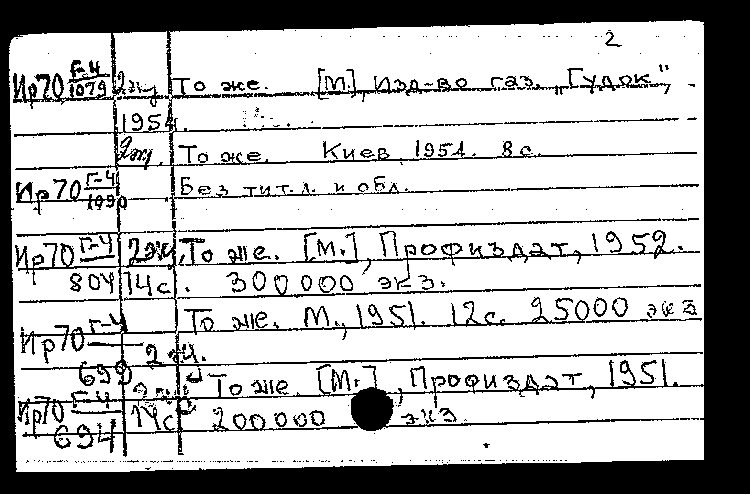 2
Ир70 Г-4/1079 2эк То же. [М.], Изд-во газ. „Гудок",
1951.
2эк. То же. Киев, 1951. 8 с.
Ир70 Г-4/1090 Без тит.л. и обл.
Ир70 Г-4/804 2эк. То же. [М.], Профиздат, 1952.
14с. 300000 экз.
Ир70 Г-4/699 2 эк. То же. М., 1951. 12с. 25000 экз
Ир70 Г-4/694 2 эк. То же. [М.], Профиздат, 1951.
14с 200000 экз.